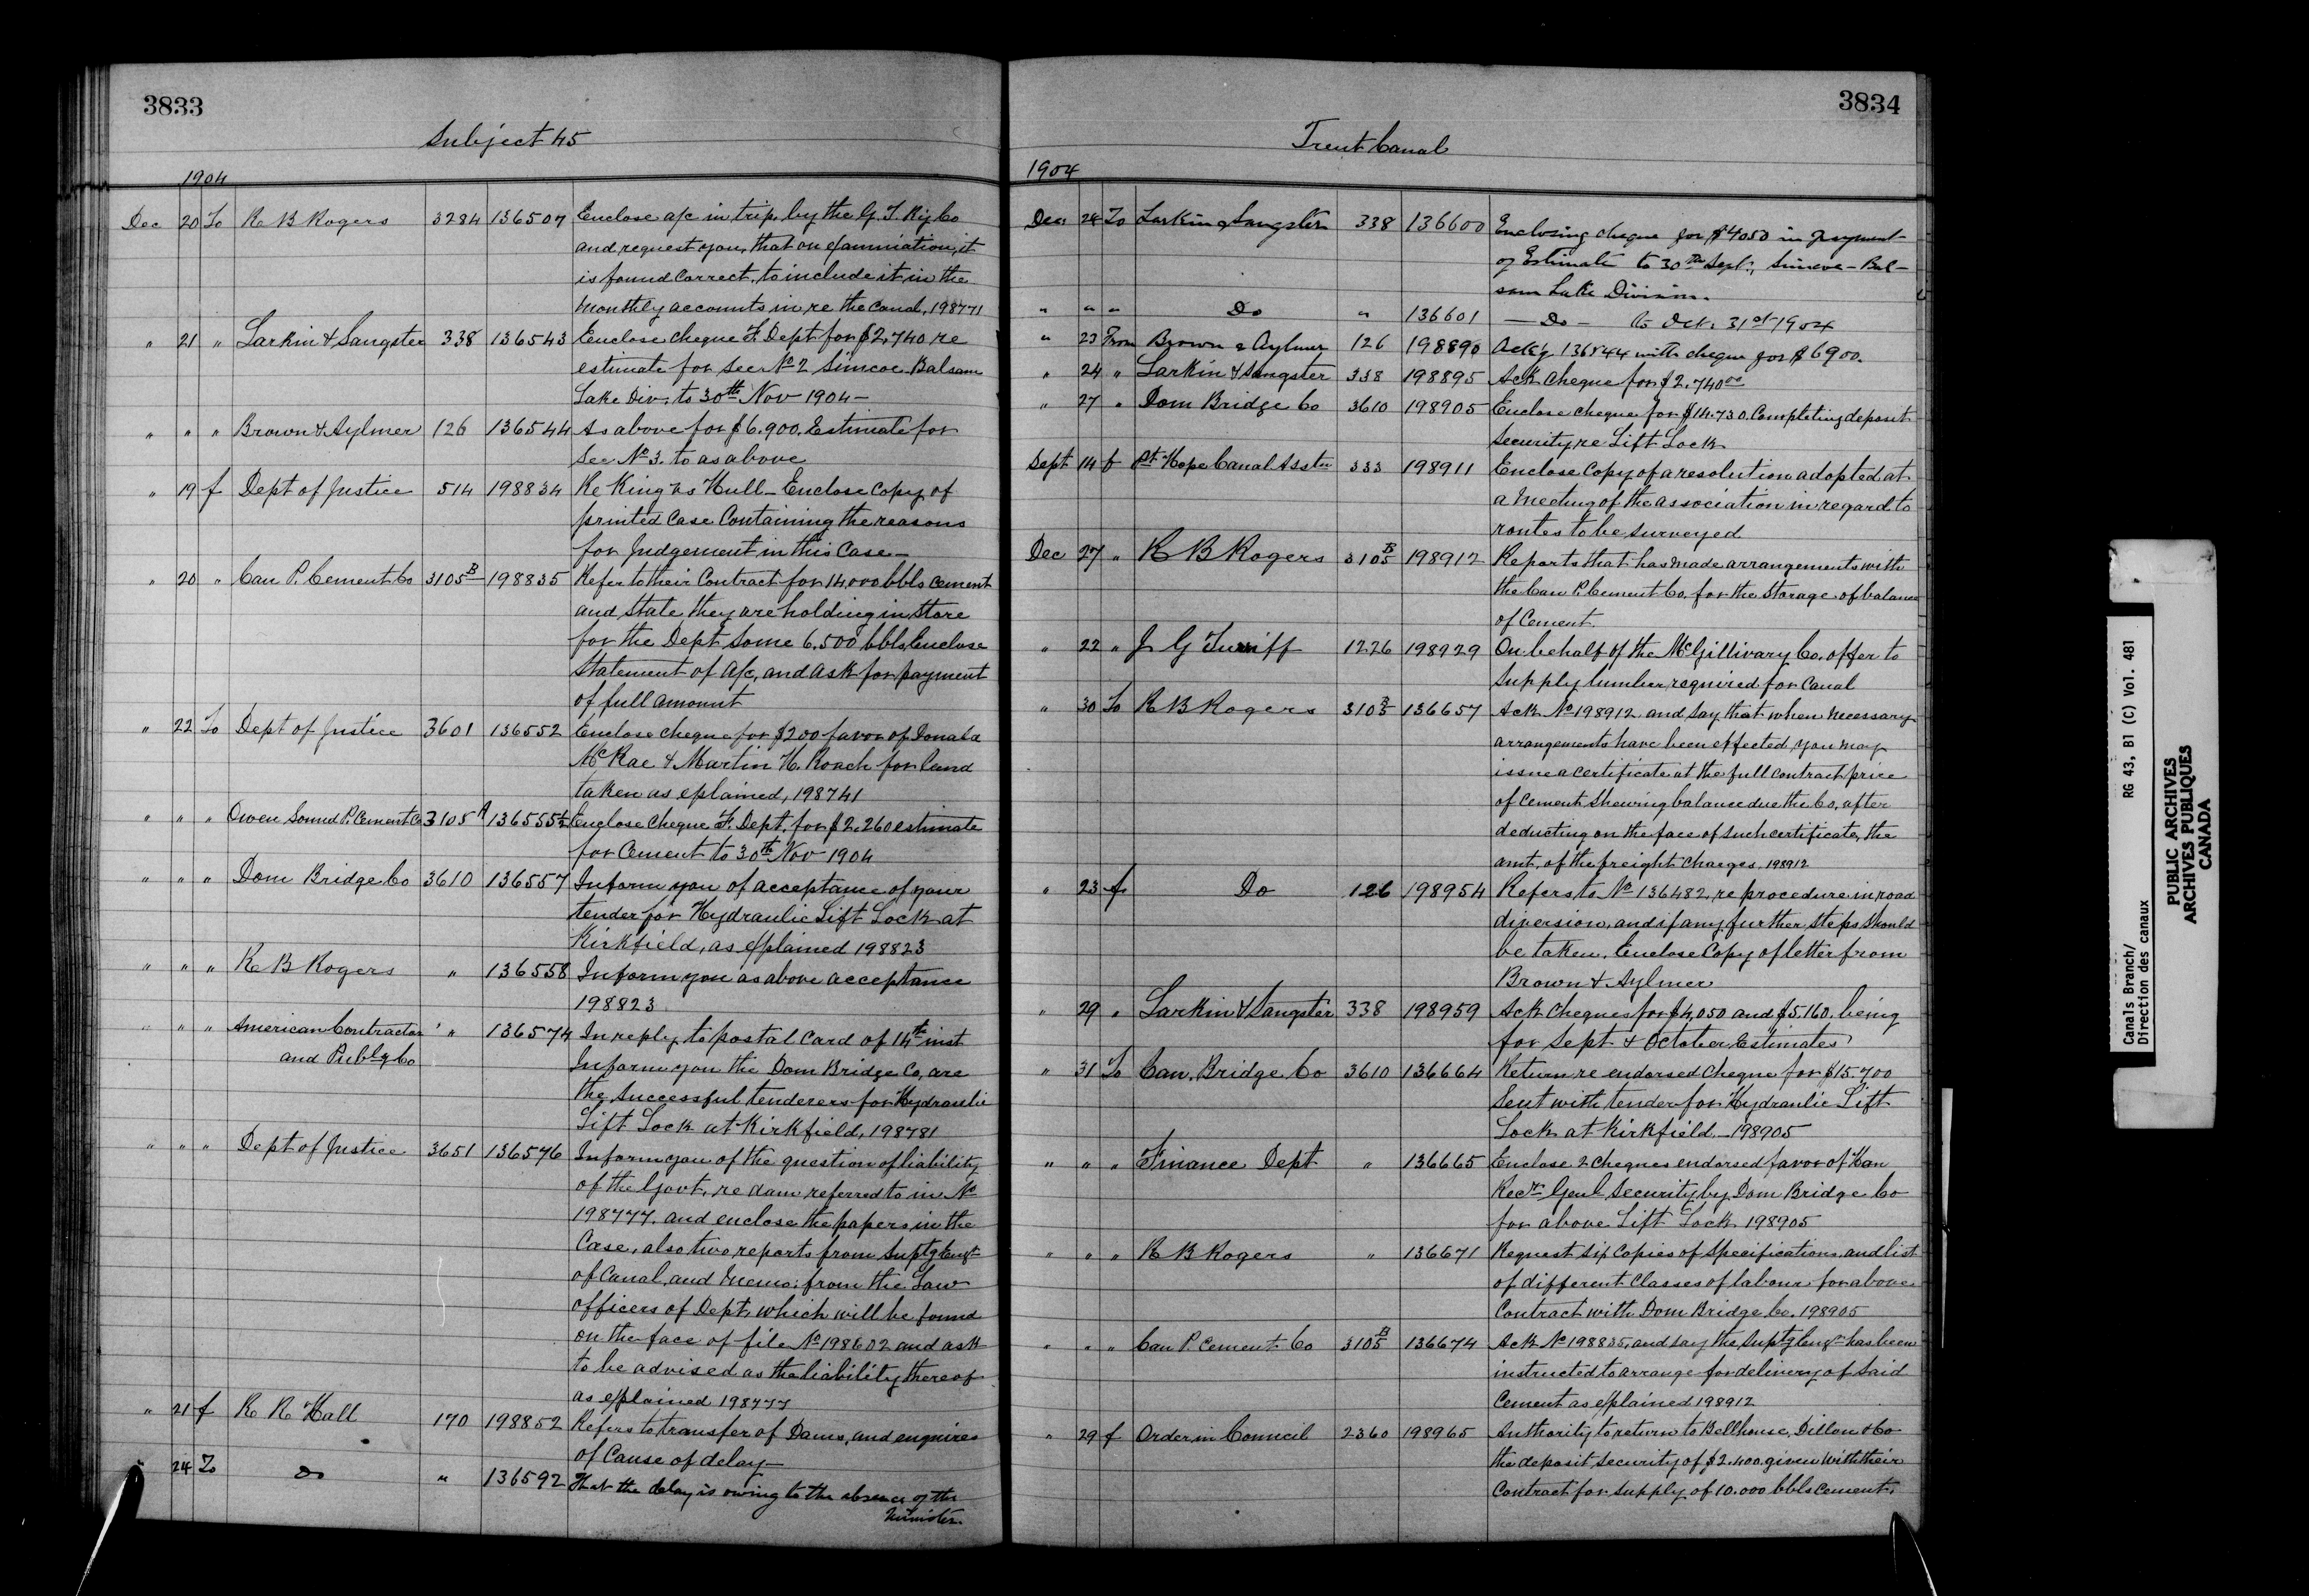 3833
Subject 45
1904
Dec 20 To R B Rogers 3284 136507 Enclose a/c in trip. by the G. T. Ry Co
and request you, that on examination, it
is found correct, to include it in the
monthly accounts in re the Canal, 198771
" 21 " Larkin & Sangster 338 136543 Enclose cheque F. Dept for $2,740 re
estimate for sec No 2 Simcoe Balsam
Lake Div. to 30th Nov 1904 –
" " " Brown & Aylmer 126 136544 As above for $6.900. Estimate for
Sec No 3. to as above
" 19 f Dept of Justice 514 198834 Re King vs Hull – Enclose copy of
printed case containing the reasons
for Judgement in this case –
" 20 " Can P. Cement Co 3105 B 198835 Refer to their contract for 14,000 bbls cement
and state they are holding in store
for the Dept some 6.500 bbls, Enclose
statement of a/c, and ask for payment
of full amount
" 22 To Dept of Justice 3601 136552 Enclose cheque for $200 favor of Donald
McRae & Martin H. Roach for land
taken as eplained, 198741
" " " Owen Sound P. Cement Co 3105 A 136555½ Enclose cheque F. Dept, for $2,260 estimate
for cement to 30th Nov 1904
" " " Dom Bridge Co 3610 136557 Inform you of acceptance of your
tender for Hydraulic Lift Lock at
Kirkfield, as explained 198823
" " " R B Rogers " 136558 Inform you as above acceptance
198823
" " " American Contractor " 136574 In reply to postal card of 14th inst
and Publg Co Inform you the Dom Bridge Co, are
the successful tenderers for Hydraulic
Lift Lock at Kirkfield, 198781
" " " Dept of Justice 3651 136576 Inform you of the question of liability
of the Govt, re dam referred to in No
198777. and enclose the papers in the
case, also two reports from Suptg Engr
of Canal, and Memo: from the Law
officers of Dept, which will be found
on the face of file No 198602 and ask
to be advised as the liability thereof
as explained 198777
" 21 f R R Hall 170 198852 Refers to transfer of Dams, and enquires
of cause of delay
" 24 To Do " 136592 That the delay is owing to the absence of the
Minister.
3834
Trent Canal
1904
Dec 24 To Larkin & Sangster 338 136600 Enclosing cheque for $4050 in payment
of Estimate to 30th Sept., Simcoe – Bal-
sam Lake Division.
" " " Do " 136601 – Do – to Oct. 31st 1904
" 23 From Brown & Aylmer 126 198890 Ack'g 136544 with cheque for $6900.
" 24 " Larkin & Sangster 338 198895 Ack cheque for $2.740.00
" 27 " Dom Bridge Co 3610 198905 Enclose cheque for $14.730. Completing deposit
security, re Lift Lock
Sept 14 f Pt. Hope Canal Asstn 333 198911 Enclose copy of a resolution adopted at
a meeting of the association in regard to
routes to be surveyed
Dec 27 " R B Rogers 3105 B 198912 Reports that has made arrangements with
the Can P. Cement Co. for the storage of balance
of Cement.
" 22 " J G Turriff 1226 198929 On behalf of the McGillivary Co. offer to
supply lumber required for canal
" 30 To R B Rogers 3105 B 136657 Ack No 198912 and say that when necessary
arrangements have been effected you may
issue a certificate at the full contract price
of cement shewing balance due the Co, after
deducting on the face of such certificate, the
amt. of the freight charges 198912
" 23 f Do 126 198954 Refers to No 136482, re procedure in road
diversion, and if any further steps should
be taken, Enclose Copy of letter from
Brown & Aylmer
" 29 " Larkin & Sangster 338 198959 Ack cheques for $4,050 and $5.160. being
for Sept & October Estimates
" 31 To Can. Bridge Co 3610 136664 Return re endorsed cheque for $15.700
sent with tender for Hydraulic Lift
Lock at Kirkfield – 198905
" " " Finance Dept " 136665 Enclose 2 cheques endorsed favor of Hon
Recr Genl Security by Dom Bridge Co
for above Lift Lock 198905
" " " R B Rogers " 136671 Request six copies of specifications and list
of different classes of labour for above
Contract with Dom Bridge Co. 198905
" " " Can P. Cement Co 3105 B 136674 Ack No 198835, and say the Suptg Engr has been
instructed to arrange for delivery of said
cement as explained 198912
" 29 f Order in Council 2360 198965 Authority to return to Bellhouse, Dillon & Co
the deposit security of $2.400. given with their
contract for supply of 10.000 bbls cement.
Canals Branch/
Direction des canaux
RG 43, B1 (C) Vol. 481
PUBLIC ARCHIVES
ARCHIVES PUBLIQUES
CANADA